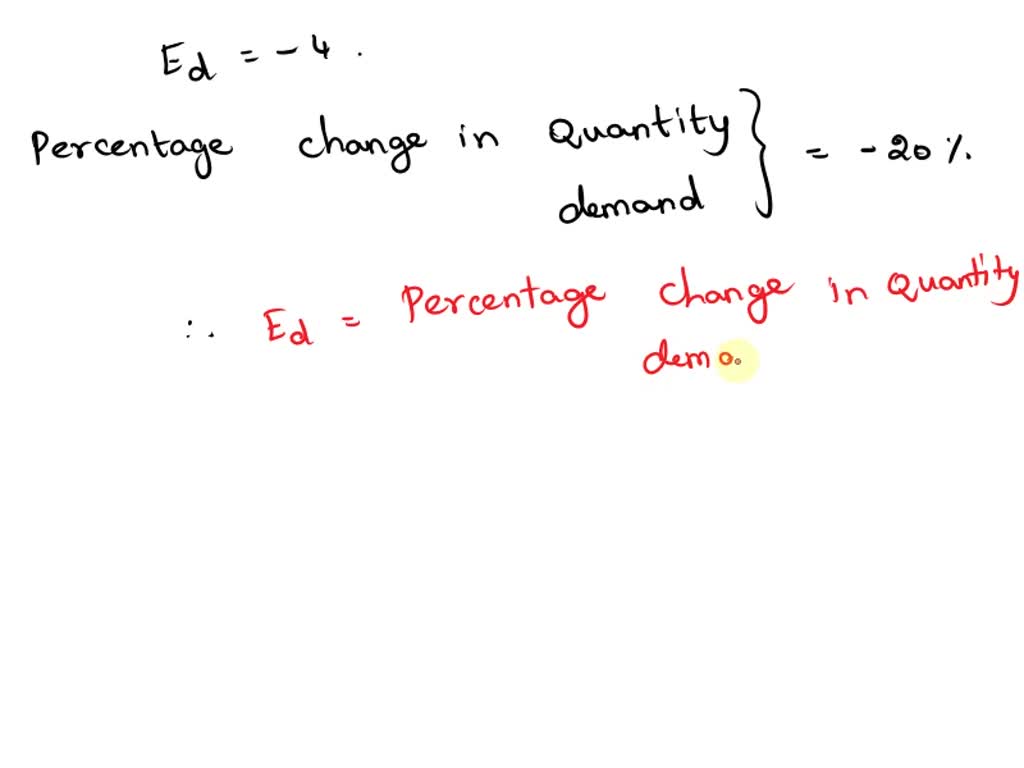 Ed = - 4 .
Percentage change in Quantity demand } = - 20 %.
∴ Ed = Percentage change in Quantity
demo.